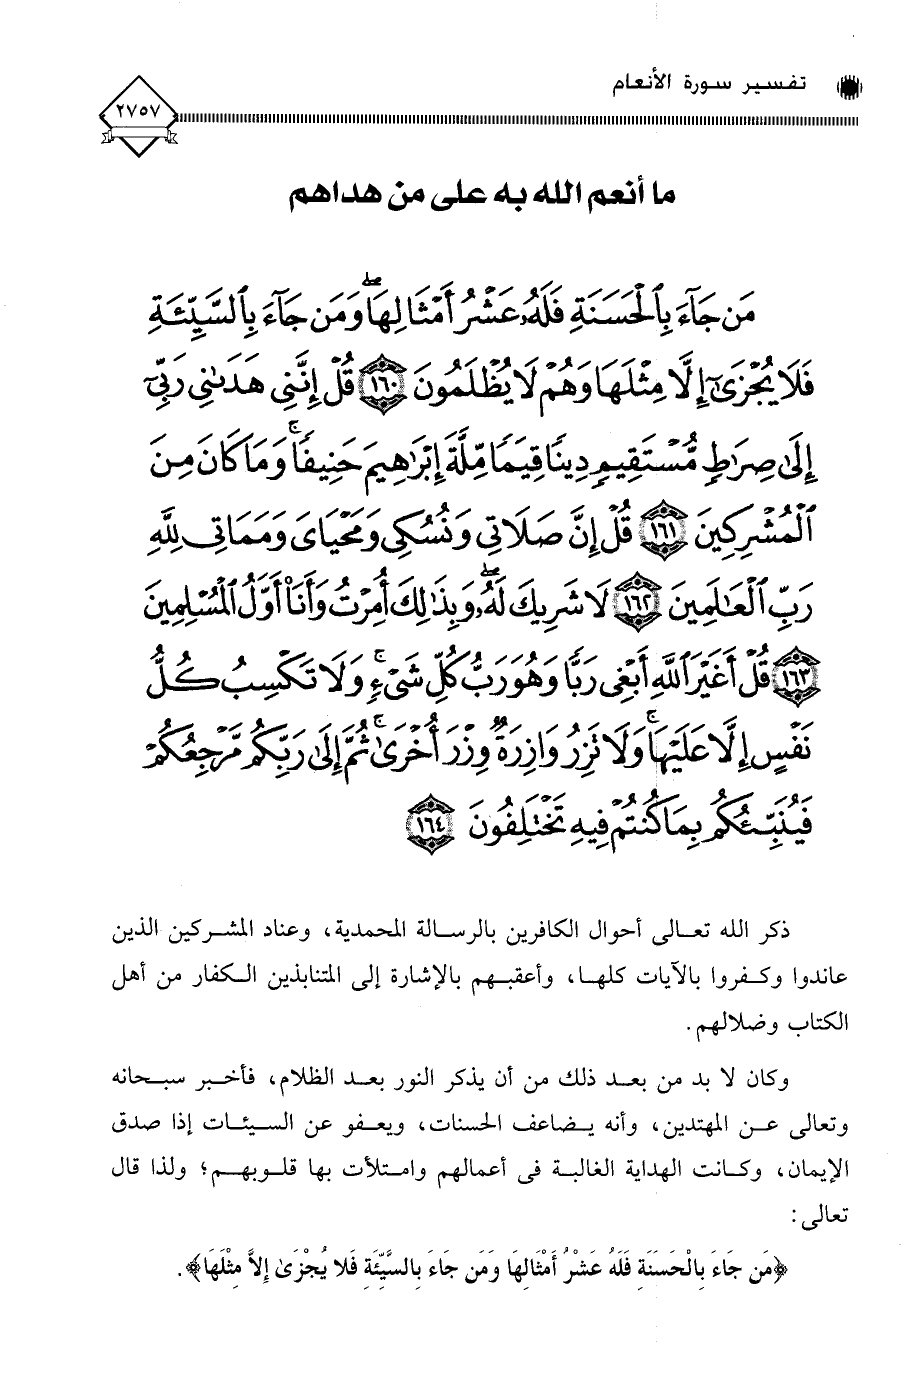 تفسير سورة الأنعام
٢٧٥٧
ما أنعم الله به على من هداهم
مَن جَآءَ بِٱلْحَسَنَةِ فَلَهُۥ عَشْرُ أَمْثَالِهَا ۖ وَمَن جَآءَ بِٱلسَّيِّئَةِ
فَلَا يُجْزَىٰٓ إِلَّا مِثْلَهَا وَهُمْ لَا يُظْلَمُونَ ١٦٠ قُلْ إِنَّنِى هَدَىٰنِى رَبِّىٓ
إِلَىٰ صِرَٰطٍ مُّسْتَقِيمٍ دِينًا قِيَمًا مِّلَّةَ إِبْرَٰهِيمَ حَنِيفًا ۚ وَمَا كَانَ مِنَ
ٱلْمُشْرِكِينَ ١٦١ قُلْ إِنَّ صَلَاتِى وَنُسُكِى وَمَحْيَاىَ وَمَمَاتِى لِلَّهِ
رَبِّ ٱلْعَٰلَمِينَ ١٦٢ لَا شَرِيكَ لَهُۥ ۖ وَبِذَٰلِكَ أُمِرْتُ وَأَنَا۠ أَوَّلُ ٱلْمُسْلِمِينَ
١٦٣ قُلْ أَغَيْرَ ٱللَّهِ أَبْغِى رَبًّا وَهُوَ رَبُّ كُلِّ شَىْءٍ ۚ وَلَا تَكْسِبُ كُلُّ
نَفْسٍ إِلَّا عَلَيْهَا ۚ وَلَا تَزِرُ وَازِرَةٌ وِزْرَ أُخْرَىٰ ۚ ثُمَّ إِلَىٰ رَبِّكُم مَّرْجِعُكُمْ
فَيُنَبِّئُكُم بِمَا كُنتُمْ فِيهِ تَخْتَلِفُونَ ١٦٤
ذكر الله تعالى أحوال الكافرين بالرسالة المحمدية، وعناد المشركين الذين
عاندوا وكفروا بالآيات كلها، وأعقبهم بالإشارة إلى المتنابذين الكفار من أهل
الكتاب وضلالهم.
وكان لا بد من بعد ذلك من أن يذكر النور بعد الظلام، فأخبر سبحانه
وتعالى عن المهتدين، وأنه يضاعف الحسنات، ويعفو عن السيئات إذا صدق
الإيمان، وكانت الهداية الغالبة فى أعمالهم وامتلأت بها قلوبهم؛ ولذا قال
تعالى:
﴿مَن جَاءَ بِالْحَسَنَةِ فَلَهُ عَشْرُ أَمْثَالِهَا وَمَن جَاءَ بِالسَّيِّئَةِ فَلا يُجْزَىٰ إِلاَّ مِثْلَهَا﴾.